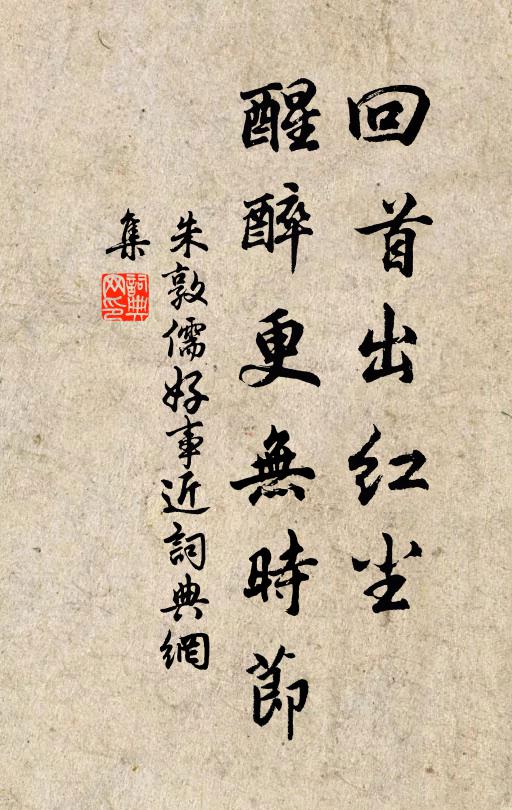 回首出红尘
醒醉更無時節
朱敦儒好事近詞典網
集
詞典
网印